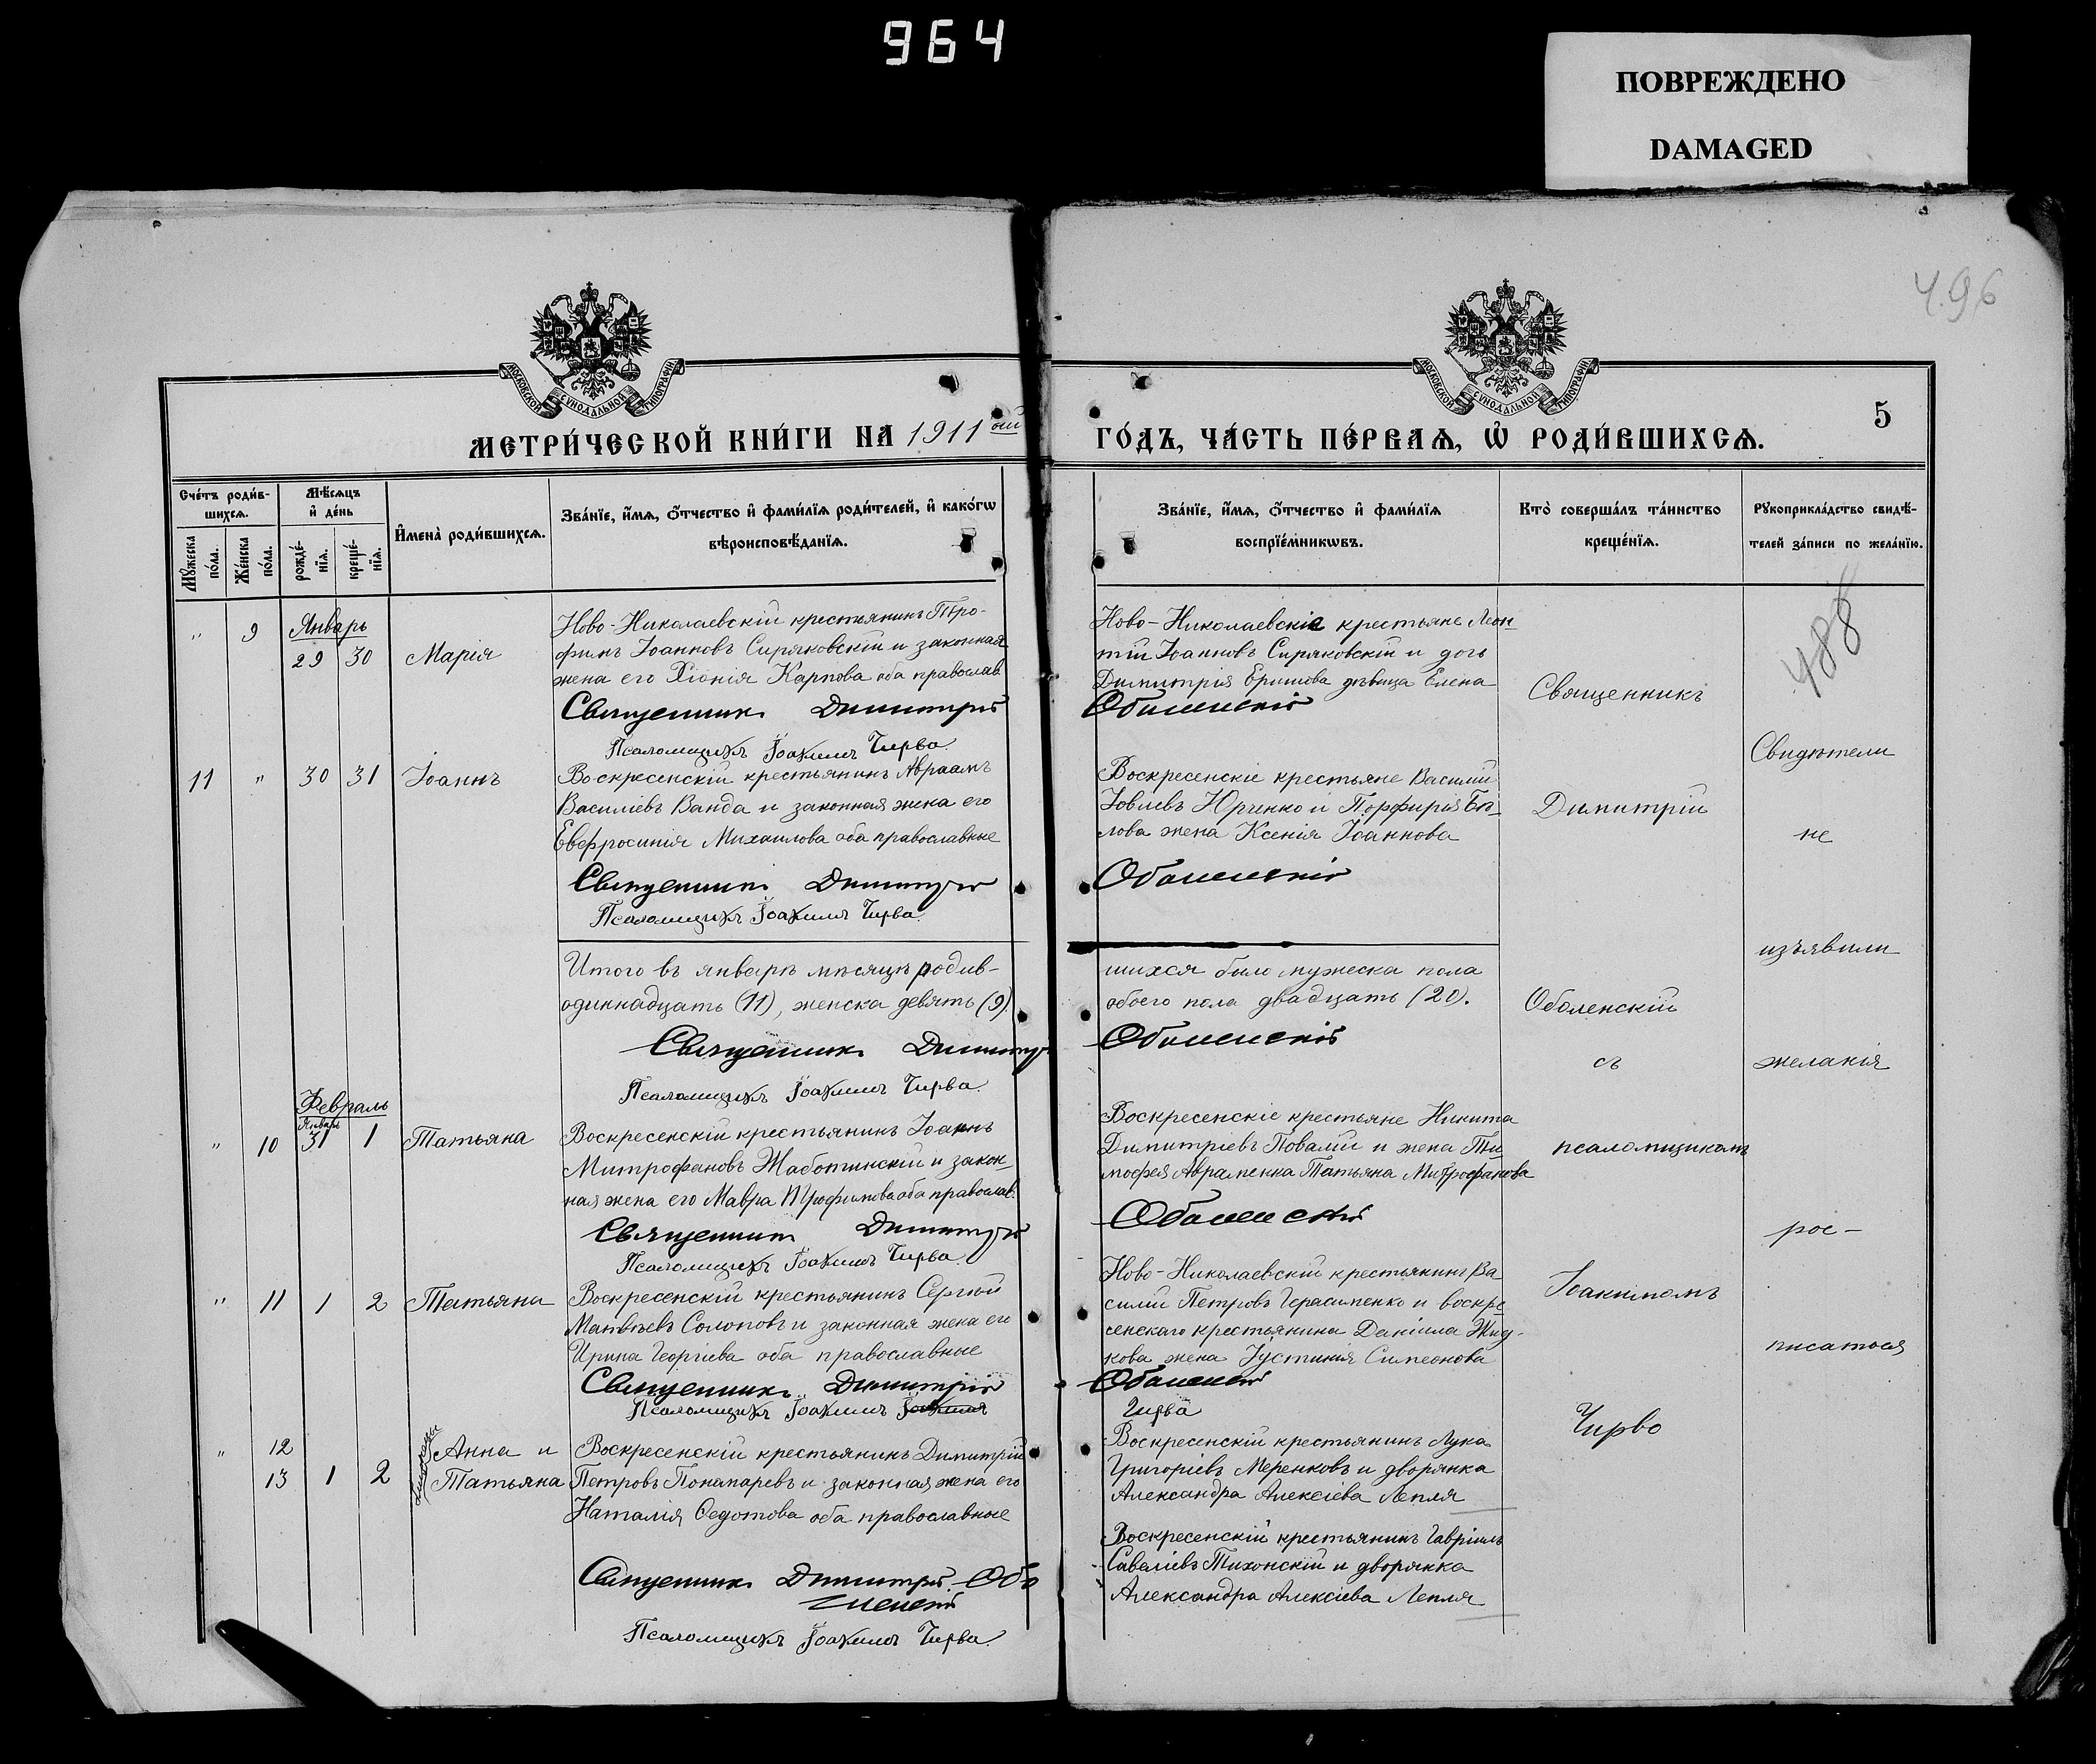 964
ПОВРЕЖДЕНО
DAMAGED
496
МОСКОВСКОЙ СѴНОДАЛЬНОЙ ТИПОГРАФІИ
МОСКОВСКОЙ СѴНОДАЛЬНОЙ ТИПОГРАФІИ
5
МЕТРИ́ЧЕСКОЙ КНИ́ГИ НА 1911ый
ГО́ДЪ, ЧА́СТЬ ПЕ́РВАѦ, Ѡ РОДИ́ВШИХСѦ.
Сче́тъ роди́в-
шихсѧ.
Мꙋ́жеска
по́ла.
Же́нска
по́ла.
Мѣ́сѧцъ
и҆ де́нь
рожде́-
нїѧ.
креще́-
нїѧ.
И҆мена̀ роди́вшихсѧ.
Зва́нїе, и҆́мѧ, ѻ҆́тчество и҆ фами́лїѧ роди́телей, и҆ како́гѡ
вѣроисповѣ́данїѧ.
Зва́нїе, и҆́мѧ, ѻ҆́тчество и҆ фами́лїѧ
воспрїе́мникѡвъ.
Кто̀ соверша́лъ та́инство
креще́нїѧ.
Рꙋкоприкла́дство свидѣ́-
телей за́писи по жела́нїю.
488
" 9 Январь
29 30 Марія
Ново-Николаевскій крестьянинъ Тро-
фимъ Іоанновъ Сиряковскій и законная
жена его Хіонія Карпова оба православ.
Священникъ Димитрій
Псаломщикъ Іоакимъ Чирва.
Ново-Николаевскіе крестьяне Леон-
тій Іоанновъ Сиряковскій и дочь
Димитрія Ершова дѣвица Елена
Оболенскій
11 " 30 31 Іоаннъ
Воскресенскій крестьянинъ Авраамъ
Василіевъ Ванда и законная жена его
Евфросинія Михаилова оба православные
Священникъ Димитрій
Псаломщикъ Іоакимъ Чирва.
Воскресенскіе крестьяне Василій
Іовлевъ Юрченко и Порфирія Бѣ-
лова жена Ксенія Іоаннова
Оболенскій
Итого въ январѣ мѣсяцѣ родив-
одиннадцать (11), женска девять (9).
Священникъ Димитрій
Псаломщикъ Іоакимъ Чирва.
шихся было мужеска пола
обоего пола двадцать (20).
Оболенскій
Февраль
Январь
" 10 31 1 Татьяна
Воскресенскій крестьянинъ Іоаннъ
Митрофановъ Жаботинскій и закон-
ная жена его Мавра Трофимова оба православ.
Священникъ Димитрій
Псаломщикъ Іоакимъ Чирва.
Воскресенскіе крестьяне Никита
Димитріевъ Повалій и жена Ти-
мофея Авраменка Татьяна Митрофанова
Оболенскій
" 11 1 2 Татьяна
Воскресенскій крестьянинъ Сергій
Матвѣевъ Солоповъ и законная жена его
Ирина Георгіева оба православные
Священникъ Димитрій
Псаломщикъ Іоакимъ Іоакимъ
Ново-Николаевскій крестьянинъ Ва-
силій Петровъ Герасименко и воскре-
сенскаго крестьянина Даніила Жид-
кова жена Іустинія Симеонова
Оболенскій
Чирва
" 12 Анна и
13 1 2 Татьяна
Воскресенскій крестьянинъ Димитрій
Петровъ Понамаревъ и законная жена его
Наталія Ѳедотова оба православные
Священникъ Димитрій Обо-
ленскій
Псаломщикъ Іоакимъ Чирва.
Воскресенскій крестьянинъ Лука
Григоріевъ Меренковъ и дворянка
Александра Алексіева Лепля
Воскресенскій крестьянинъ Гавріилъ
Савеліевъ Тихонскій и дворянка
Александра Алексіева Лепля
Священникъ
Димитрій
Оболенскій
съ
псаломщикомъ
Іоакимомъ
Чирво
Свидѣтели
не
изъявили
желанія
рос-
писаться